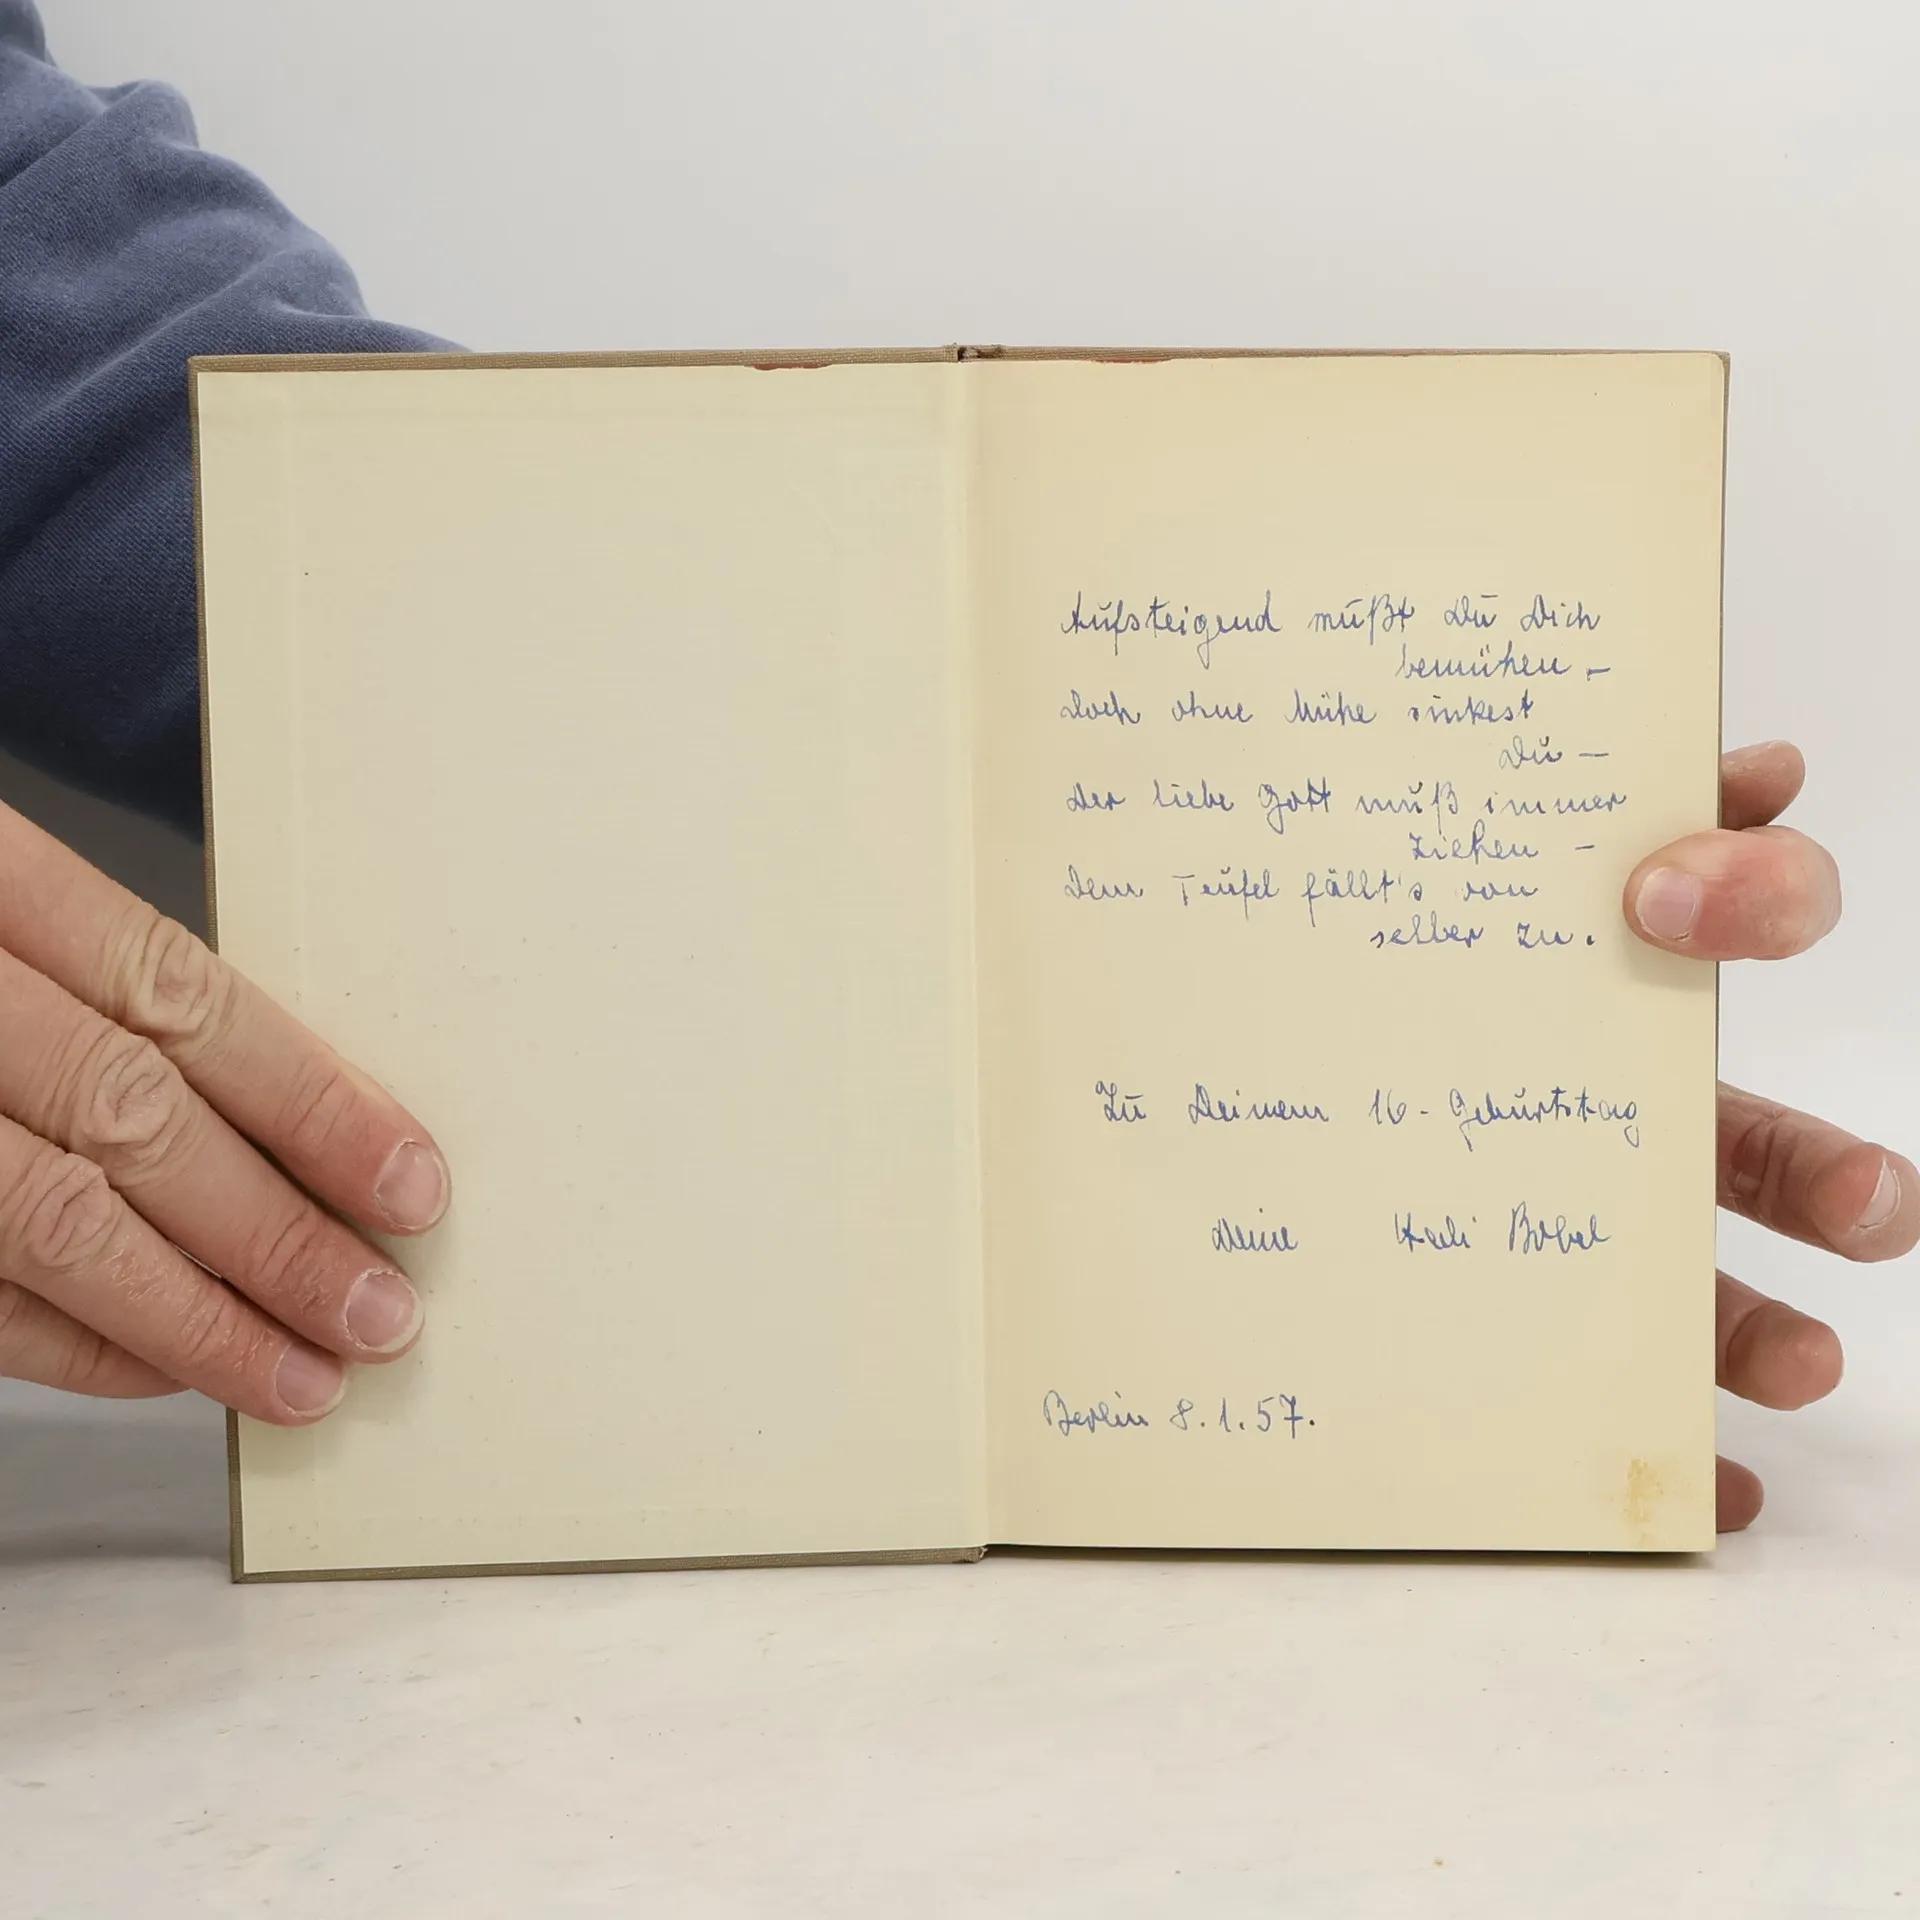 Aufsteigend mußt Du Dich
bemühen –
Doch ohne Mühe sinkest
Du –
Der liebe Gott muß immer
ziehen –
Dem Teufel fällt's von
selber zu.
Zu Deinem 16. Geburtstag
Deine
Berlin 8.1.57.